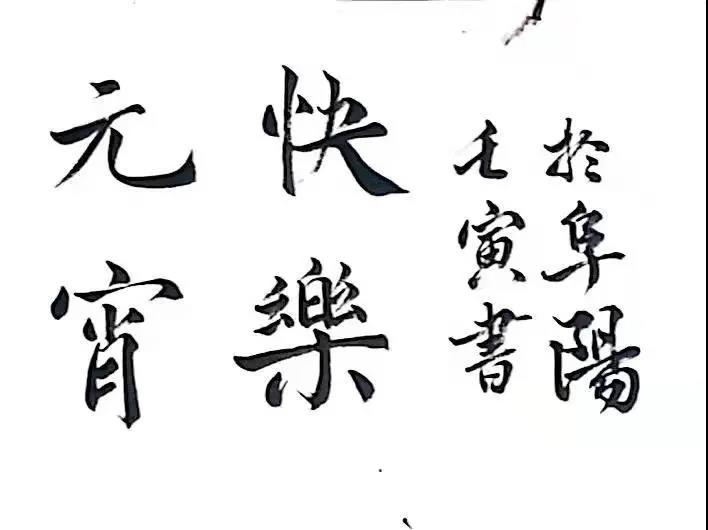 元宵
快樂
壬寅書
於阜陽